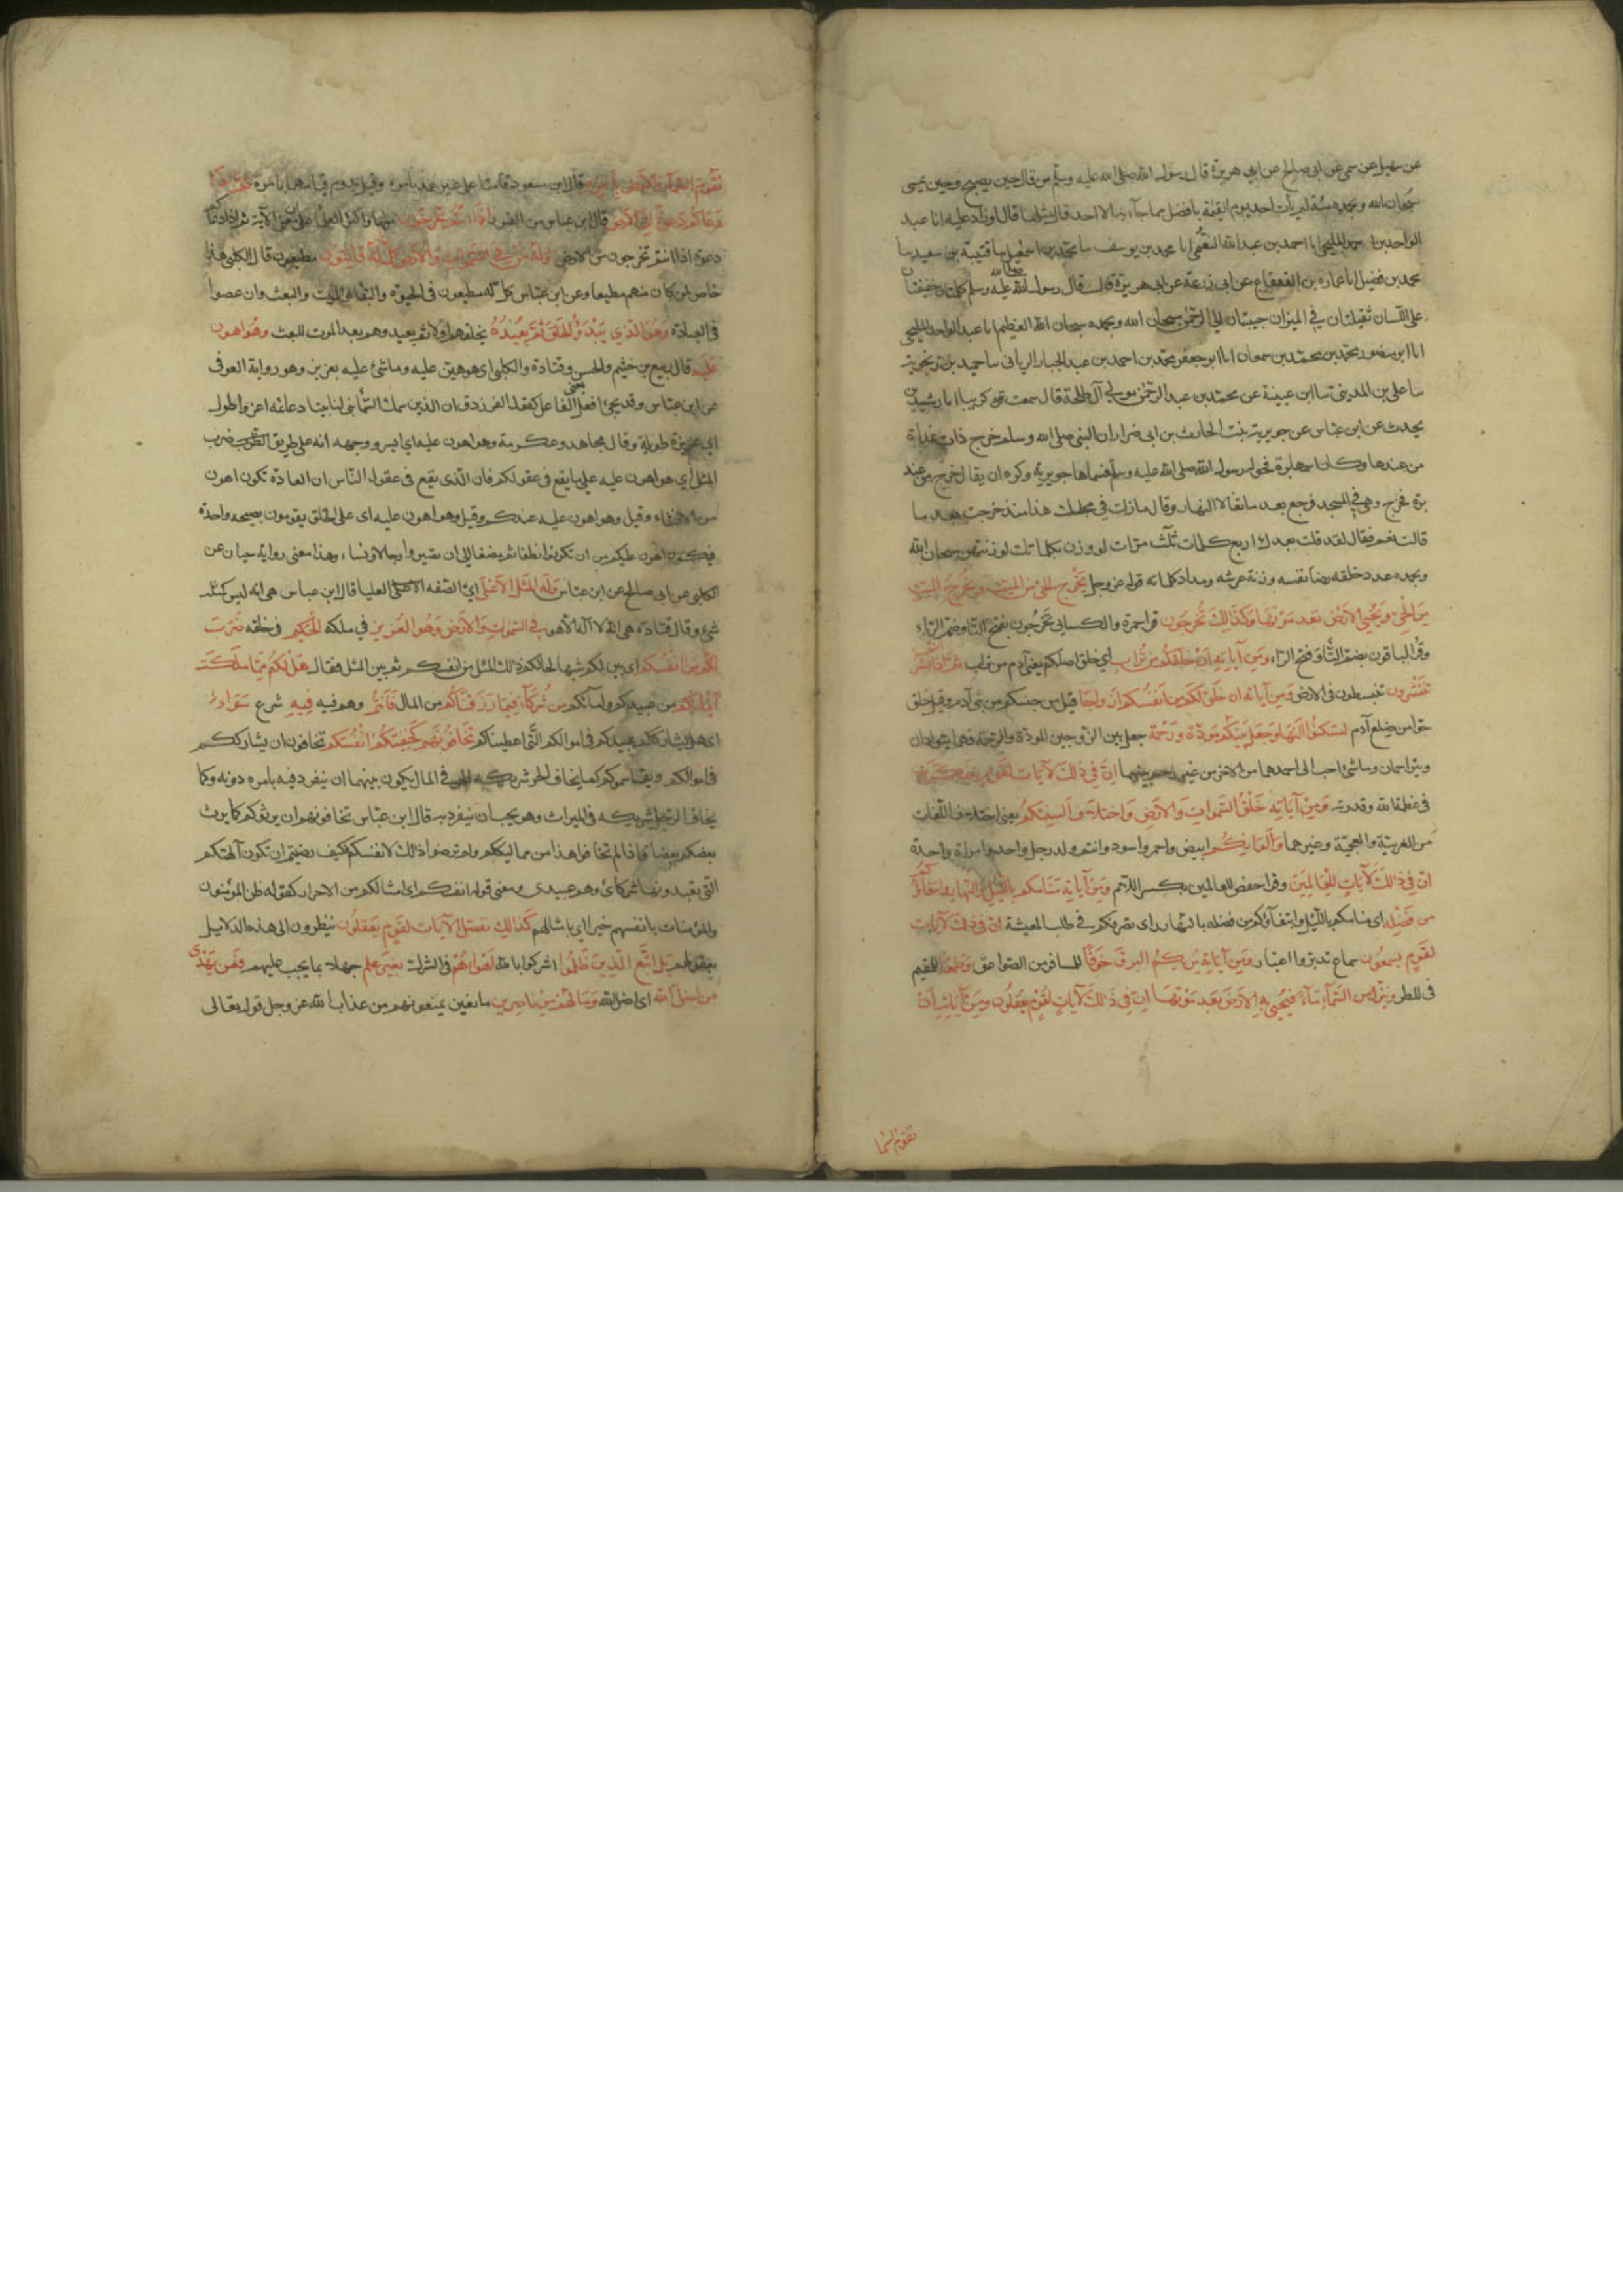 عن سهيل عن سمي عن ابى صالح عن ابي هريرة قال رسول الله صلى الله عليه وسلم من قال حين يصبح وحين يمسى
سبحان الله وبحمده مئة لم يأت احد يوم القيمة بافضل مما جآء به الا احد قال مثل ما قال او زاد عليه انا عبد
الواحد بن احمد المليحى انا احمد بن عبد الله النعيمى انا محمد بن يوسف سا محمد بن اسمعيل سا قتيبة بن سعيد سا
محمد بن فضيل انا عماره بن القعقاع عن ابى زرعة عن ابى هريرة قال قال رسول الله صلى الله عليه وسلم كلمتان خفيفتان
على اللسان ثقيلتان في الميزان حبيبتان الى الرحمن سبحان الله وبحمده سبحان الله العظيم انا عبد الواحد المليحى
انا ابو منصور محمد بن محمد بن سمعان انا ابو جعفر محمد بن احمد بن عبد الجبار الريانى سا حميد بن زنجويه
سا على بن المدينى سا ابن عيينة عن محمد بن عبد الرحمن مولى آل طلحة قال سمعت كريبا ابا رشدين
يحدث عن ابن عباس عن جويرية بنت الحارث بن ابى ضرار ان النبى صلى الله وسلم خرج ذات غداة
من عندها وكان اسمها برة فحول رسول الله صلى الله عليه وسلم فسماها جويرية وكره ان يقال خرج من عند
برة فخرج وهي في المسجد فرجع بعد ما تعالا النهار وقال ما زلت في مجلسك هذا منذ خرجت بعد سا
قالت نعم فقال لقد قلت بعدك اربع كلمات ثلث مرات لو وزن بكلماتك لوزنتهن سبحان الله
وبحمده عدد خلقه رضا نفسه وزنة عرشه ومداد كلماته قوله عز وجل يخرج الحي من الميت ويخرج الميت
مِن الحي ويحيي الارض بعد موتها وكذلك تخرجون قرا حمزة والكسائى تخرجون بفتح التا وضم الرآء
وقرا الباقون بضم التآ وفتح الرآء ومن آياته ان خلقكم من تراب اي خلق اصلكم يعنى آدم من تراب ثم اذا انتم بشر
تنتشرون تنبسطون فى الارض ومن آياته ان خلق لكم من انفسكم ازواجا قيل من جنسكم من بنى آدم وقيل خلق
حوا من ضلع آدم لتسكنوا اليها وجعل بينكم مودة ورحمة جعل بين الزوجين المودة والرحمة فهما يتوادان
ويتراحمان وما شئ احب الى احدهما من الاخر من غير رحم بينهما ان في ذلك لآيات لقوم يتفكرون
فى عظمة الله وقدرته ومن آياته خلق السموات والارض واختلاف السنتكم يعنى اختلاف اللغات
من العربيّة والعجميّة وغيرهما والوانكم ابيض واحمر واسود وانتم ولد رجل واحد وامراة واحدة
ان في ذلك لآيات للعالمين وقرا حفص للعالمين بكسر اللام ومن آياته منامكم بالليل والنهار وابتغاؤكم
من فضله اى منامكم بالليل وابتغآؤكم من فضله بالنهار اى تصرفكم في طلب المعيشة ان فى ذلك لآيات
لقوم يسمعون سماع تدبر واعتبار ومن آياته يريكم البرق خوفا للمسافر من الصواعق وطمعا للمقيم
فى المطر وينزل من السمآء مآء فيحيي به الارض بعد موتها ان فى ذلك لآيات لقوم يعقلون ومن آياته ان
تقوم السما
تقوم السمآء والارض بامره قال ابن مسعود قامتا على غير عمد بامره وقيل يدوم قيامهما بامره ثم اذا
دعاكم دعوة من الارض قال ابن عباس من القبور اذا انتم تخرجون منها واكثر العلما على ان معنى الآية ثم اذا دعاكم
دعوة اذا انتم تخرجون من الارض وله من في السموات والارض كل له قانتون مطيعون قال الكلبى هذا
خاص لمن كان منهم مطيعا وعن ابن عباس كل له مطيعون فى الحيوة والبقا والموت والبعث وان عصوا
فى العبادة وهو الذي يبدؤ الخلق ثم يعيده يخلقهم اولا ثم يعيدهم بعد الموت للبعث وهو اهون
عليه قال ربيع بن خثيم والحسن وقتادة والكلبى اى هو هين عليه وما شئ عليه بعزيز وهو رواية العوفى
عن ابن عباس وقد يجئ افعل بمعنى الفاعل كقول الفرزدق ان الذين سمك السمآ بنى لنا بيتا دعائمه اعز واطول
اي عزيزة طويلة وقال مجاهد وعكرمة وهو اهون عليه اي ايسر ووجهه انه على طريق ضرب
المثل اي هو اهون عليه على ما يقع فى عقولكم فان الذى يقع فى عقول الناس ان العادة تكون اهون
من الانشاء وقيل وهو اهون عليه عندكم وقيل وهو اهون عليه اى على الخلق يقومون بصيحه واحدة
فيكون اهون عليكم من ان تكونوا نطفا ثم مضغا الى ان يصيروا رجالا ونساء وهذا معنى رواية حبان عن
الكلبى عن ابى صالح عن ابن عباس وله المثل الاعلى اي الصفه العليا قال ابن عباس هى انه ليس كمثله
شئ وقال قتادة هى انه لا آله الا هو في السموات والارض وهو العزيز في ملكه الحكيم فى خلقه ضرب
لكم من انفسكم اى بين لكم شبها لحالكم ذلك المثل من انفسكم ثم بين المثل فقال هل لكم مما ملكت
ايمانكم من عبيدكم وامآئكم من شركآء فيما رزقناكم من المال فانتم وهم فيه فيه شرع سوآء
اى هل يشارككم عبيدكم فى اموالكم التى اعطيناكم تخافونهم كخيفتكم انفسكم تخافون ان يشارككم
فى اموالكم ويقاسموكم كما يخاف الحر شريكه الحر فى المال يكون بينهما ان ينفرد فيه بامره دونه وكما
يخاف الرجل شريكه فى الميراث وهو يحب ان ينفرد به قال ابن عباس تخافونهم ان يرثوكم كما يرث
بعضكم بعضا فاذا لم تخافوا هذا من مماليككم ولم ترضوا ذلك لانفسكم فكيف رضيتم ان تكون آلهتكم
التى تعبدونها شركائ وهم عبيدى ومعنى قوله انفسكم اى امثالكم من الاحرار كقوله ظن المؤمنون
والمؤمنات بانفسهم خيرا اي بامثالهم كذلك نفصل الآيات لقوم يعقلون ينظرون الى هذه الدلايل
بعقولهم بل اتبع الذين ظلموا اشركوا بالله اهواءهم فى الشرك بغير علم جهلا بما يجب عليهم فمن يهدى
من اضل الله اى اضله الله وما لهم من ناصرين مانعين يمنعونهم من عذاب الله عز وجل قوله تعالى